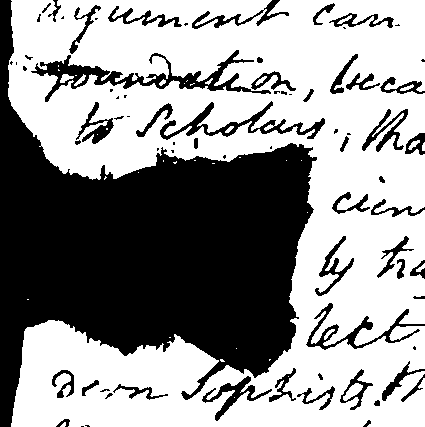 argument can
foundation, beca
to Scholars, tha
cien
by tra
lect.
dern Sophists. th